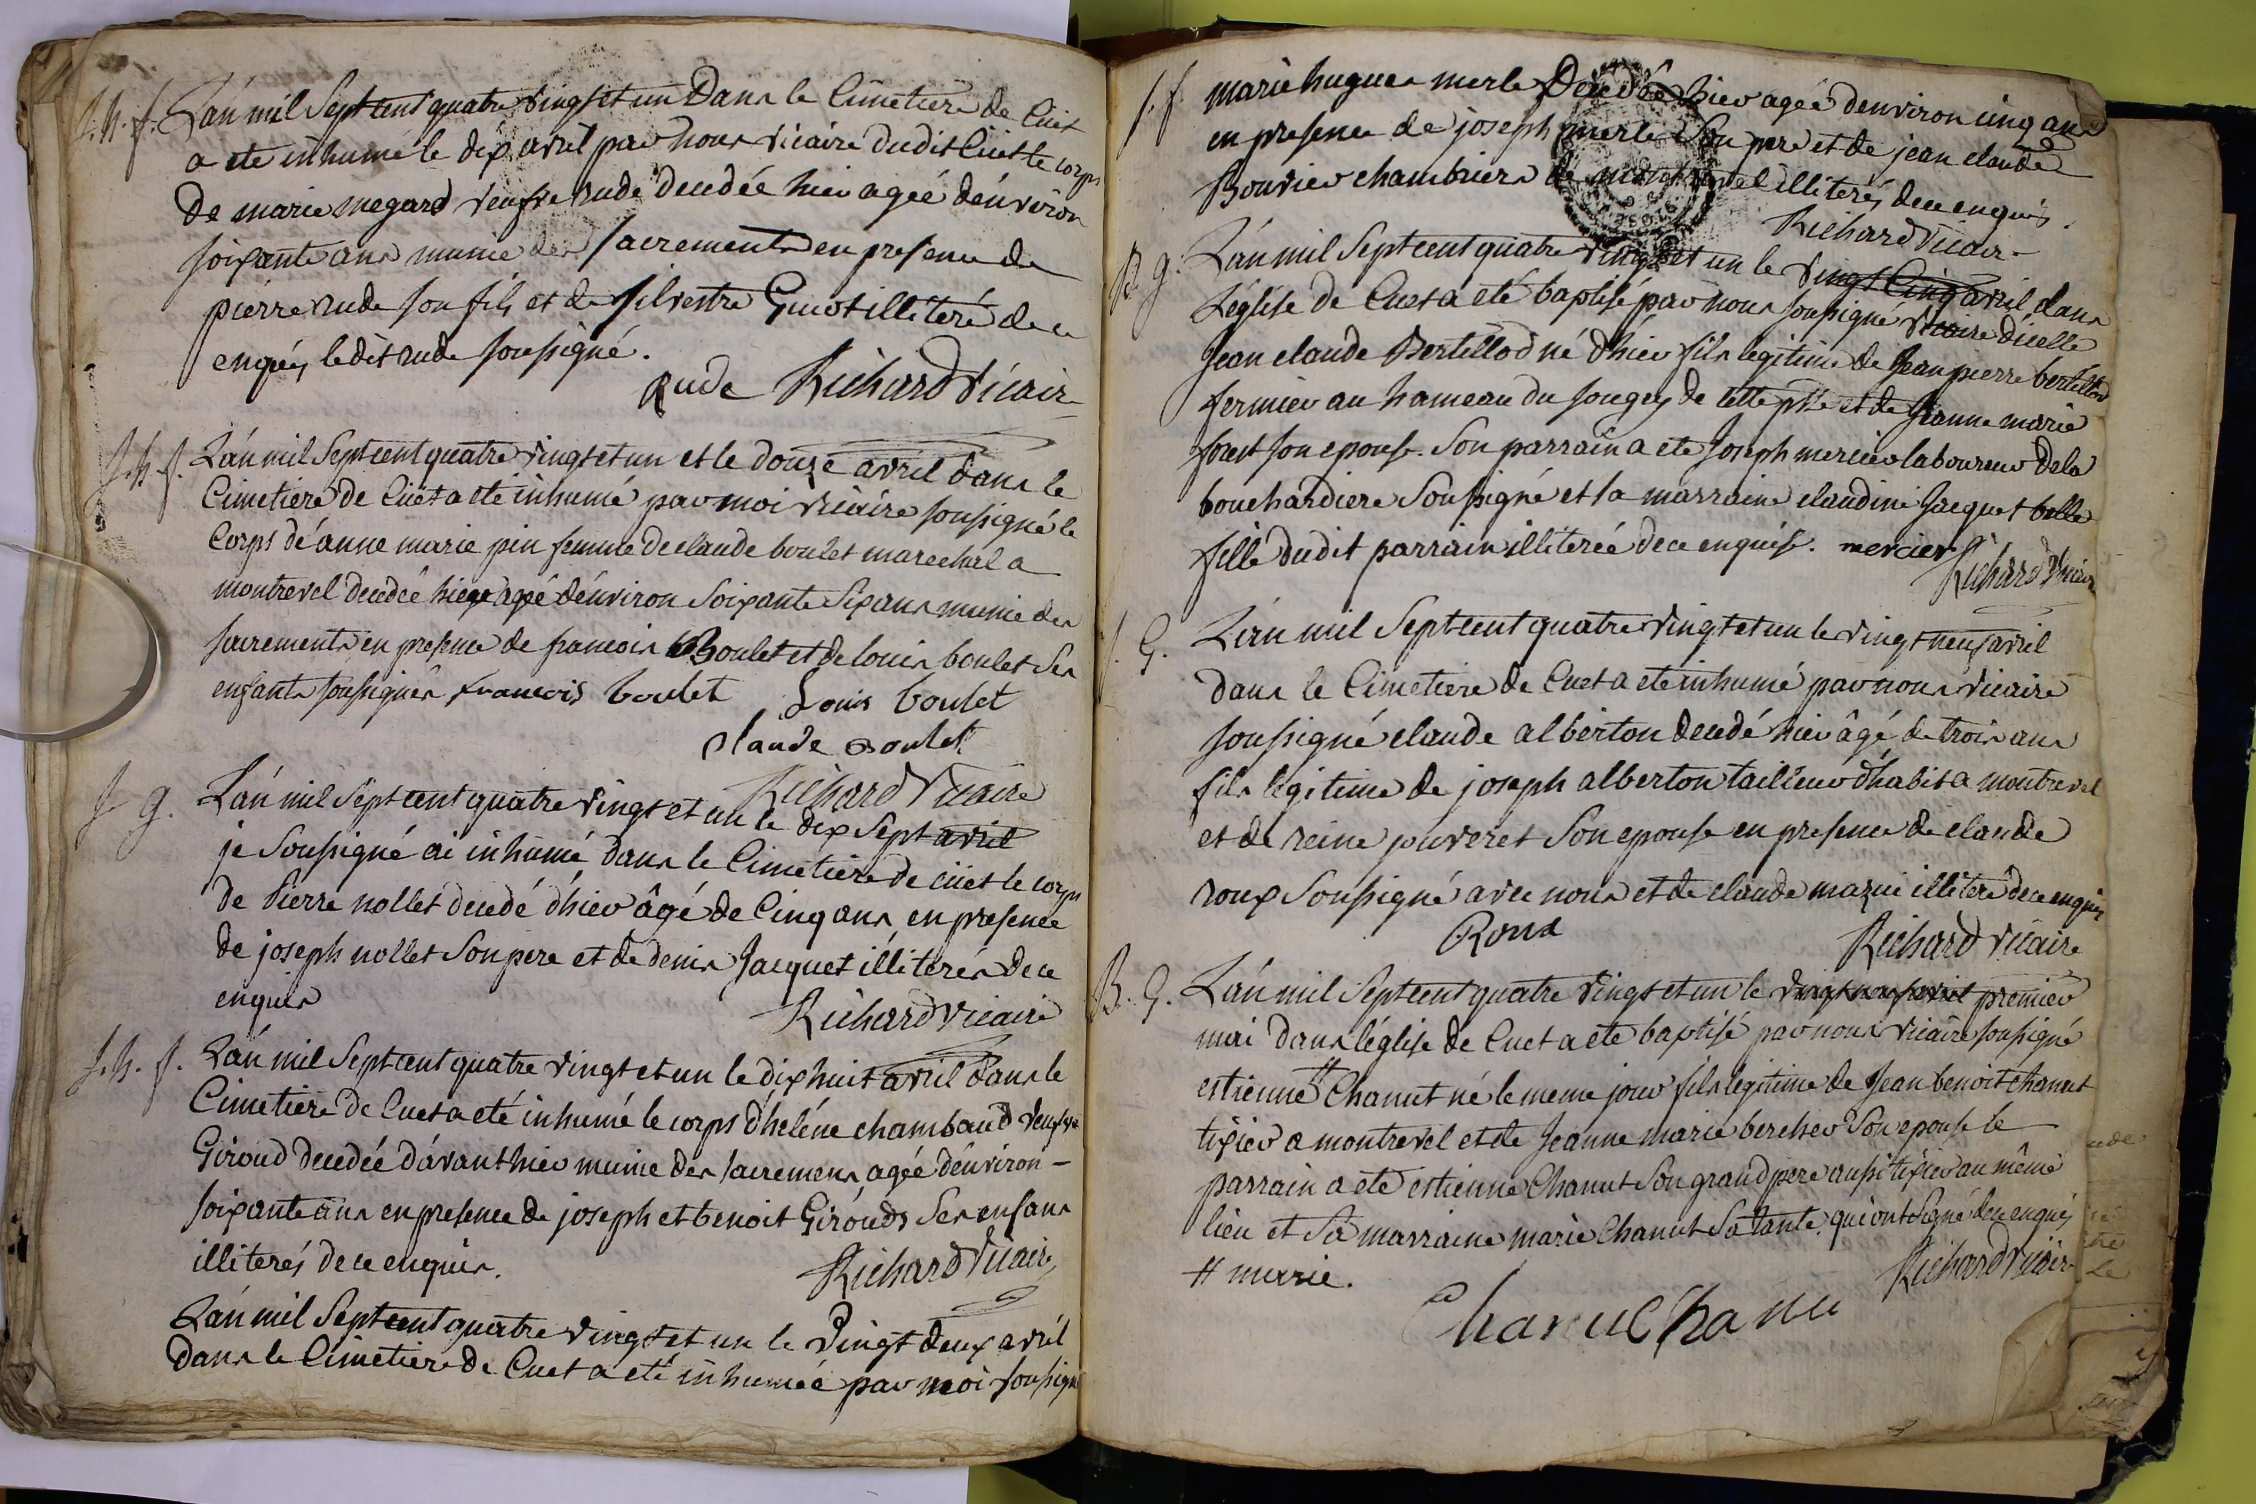 J. h. f. L'an mil sept cent quatre vingt et un Dans le Cimetiere de Cuet
a ete inhumé le dix avril par nous vicaire dudit Cuet le corps
de marie megard veufve rude decedée hier agée d'environ
soixante ans munie des sacrements en presence de
pierre rude son fils et de silvestre Guiot illiteré de ce
enquis, ledit rude soussigné.
Rude Richard vicaire
J. h. f. L'an mil sept cent quatre vingt et un et le douze avril dans le
Cimetiere de Cuet a ete inhumé par moi vicaire soussigné le
corps d'anne marie pin femme de claude boulet marechal a
montrevel decedée hier agé d'environ soixante six ans munie des
sacrements en presence de francois Boulet et de louis boulet ses
enfants soussignés francois boulet Louis boulet
claude boulet
Richard Vicaire
J g. L'an mil sept cent quatre vingt et un le dix sept avril
je soussigné ai inhumé dans le Cimetiere de cuet le corps
de Pierre nollet decedé d'hier âgé de Cinq ans, en presence
de joseph nollet son pere et de denis Jacquet illiterés de ce
enquis
Richard vicaire
J. h. f. L'an mil sept cent quatre vingt et un le dix huit avril dans le
Cimetiere de Cuet a eté inhumé le corps d'heléne chambaud veufve
Giroud decedée d'avant hier munie des sacremens agée d'environ -
soixante ans en presence de joseph et benoit Girouds ses enfans
illiterés de ce enquis.
Richard Vicaire
L'an mil sept cent quatre vingt et un le vingt deux avril
dans le Cimetiere de Cuet a eté inhumée par moi soussigné
J. f. marie hugues merle Decedée hier agée d'environ cinq ans
en presence de joseph merle son pere et de jean claude
Bouvier chambriers de montrevel illiterés de ce enquis.
Richard vicaire
B g. L'an mil sept cent quatre vingt et un le vingt Cinq avril dans
L'église de Cuet a eté baptisé par nous soussigné vicaire d'icelle
Jean claude Bertellod né d'hier fils legitime de Jean pierre bertellod
fermier au hameau du sougey de cette psse et de Jeanne marie
forest son epouse. Son parrain a ete Joseph mercier laboureur de la
bouchardiere soussigné et sa marraine claudine Jacquet belle
fille dudit parrain illiterée de ce enquise. mercier
Richard Vicaire
J. G. L'an mil sept cent quatre vingt et un le vingt neuf avril
dans le Cimetiere de Cuet a ete inhumé par nous vicaire
soussigné claude alberton decedé hier âgé de trois ans
fils legitime de joseph alberton tailleur d'habit a montrevel
et de reine jouveret son epouse en presence de claude
roux soussigné avec nous et de claude mazui illiteré de ce enquis
Roux
Richard vicaire
B. G. L'an mil sept cent quatre vingt et un le vingt neuf avril premier
mai dans l'église de Cuet a ete baptisé par nous vicaire soussigné
estienne # Chanut né le meme jour fils legitime de Jean benoit Chanut
tixier a montrevel et de Jeanne marie bercher son epouse le
parrain a ete estienne Chanut son grand pere aussi tixier au même
lieu et sa marraine marie Chanut sa tante. qui ont signé de ce enquis
Richard Vicaire
# marie.
Chanu Chanu